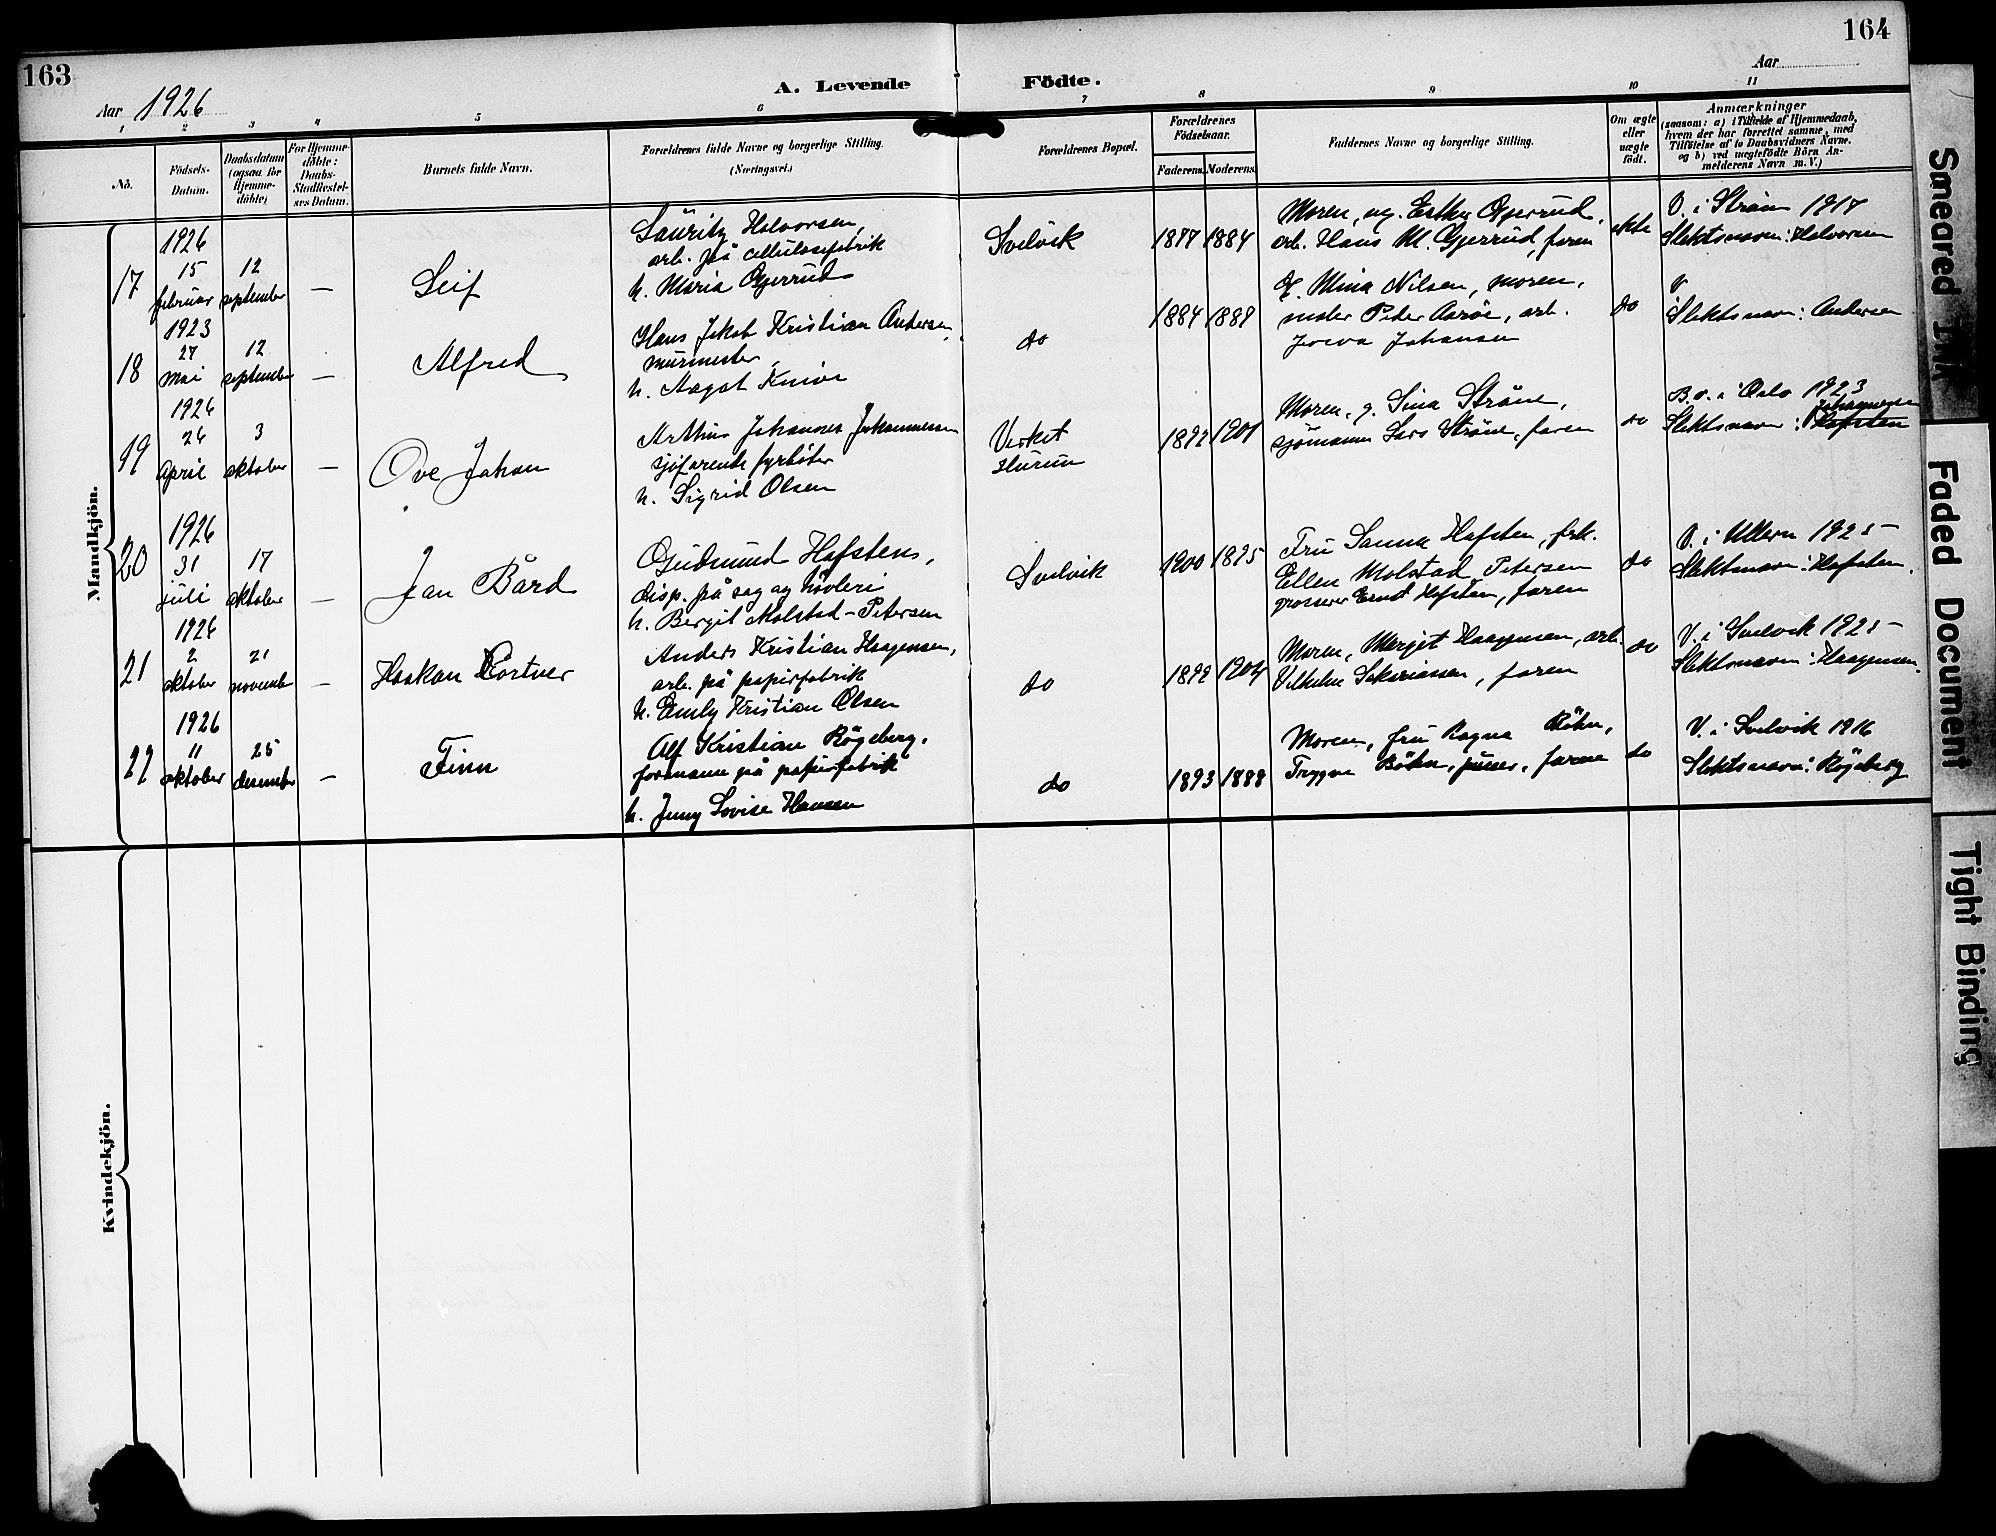 163
164
Aar 1926
A. Levende Födte.
Aar
1 2 3 4 5 6 7 8 9 10 11
No.
Födsels-
Datum.
Daabsdatum
(ogsaa for
Hjemme-
döbte)
For Hjemme-
döbte:
Daabs-
Stadfæstel-
ses Datum.
Barnets fulde Navn.
Forældrenes fulde Navne og borgerlige Stilling.
(Næringsvei.)
Forældrenes Bopæl.
Forældrenes
Födselsaar.
Faderens. Moderens.
Faddernes Navne og borgerlige Stilling.
Om ægte
eller
uægte
födt.
Anmærkninger
(saasom: a) i Tilfælde af Hjemmedaab,
hvem der har forrettet samme, med
Tilföielse af to Daabsvidners Navne.
og b) ved uægtefödte Börn An-
melderens Navn m. V.)
Mandkjön.
17
1926
15
februar
12
september
—
Leif
Lauritz Halvorsen,
arb. på cellulosefabrik
h. Maria Gjerrud
Svelvik
1877 1884
Moren, ug. Esther Gjerrud,
arb. Hans M. Gjerrud, faren
ekte
V. i Strøm 1917
Slektsnavn: Halvorsen
18
1923
27
mai
12
september
—
Alfred
Hans Jakob Kristian Andersen,
murmester
h. Aagot Knive
do
1884 1889
G. Mina Nilsen, moren,
maler Peder Aarøe, arb.
Johansen
do
V
Slektsnavn: Andersen
19
1926
26
April
3
oktober
—
Ove Johan
Arthur Johannes Johannessen
sjøfarende fyrbøter
h. Sigrid Olsen
Verket
Hurum
1892 1901
Moren, g. Sina Strøm,
sjømann Lars Strøm, faren
do
B. v. i Oslo 1923
Slektsnavn: Hafsten
Johannessen
20
1926
31
juli
17
oktober
—
Jan Bård
Gudmund Hafsten,
disp. på sag og høvleri
h. Bergit Molstad-Petersen
Svelvik
1900 1895
Fru Sanna Hafsten, frk.
Ellen Molstad Petersen
grosserer Ernst Hafsten, faren
do
V. i Ullern 1925
Slektsnavn: Hafsten.
21
1926
2
oktober
21
november
—
Haakon
Anders Kristian Haagensen,
arb. på papirfabrik
h. Emly Kristian Olsen
do
1892 1904
Moren, Margit Haagensen, arb.
Vilhelm Sakariassen, faren
do
V. i Svelvik 1925
Slektsnavn: Haagensen.
22
1926
11
oktober
25
desember
—
Finn
Alf Kristian Røgeberg,
formann på papirfabrik
h. Jenny Lovise Hansen
do
1893 1888
Moren, fru Ragna Bøhn,
Tryggve Bøhn, faren
do
V. i Svelvik 1916
Slektsnavn: Røgeberg
Kvindekjön.
Smeared Ink
Faded Document
Tight Binding